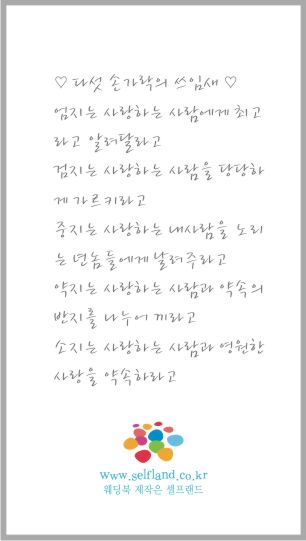 ♡ 다섯 손가락의 쓰임새 ♡
엄지는 사랑하는 사람에게 최고
라고 알려달라고
검지는 사랑하는 사람을 당당하
게 가르키라고
중지는 사랑하는 내사람을 노리
는 년놈들에게 날려주라고
약지는 사랑하는 사람과 약속의
반지를 나누어 끼라고
소지는 사랑하는 사람과 영원한
사랑을 약속하라고
www.selfland.co.kr
웨딩북 제작은 셀프랜드